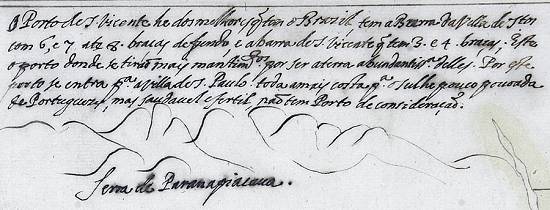 O Porto de S Vicente he dos melhores q̃ tem o Brazil tem a Barra da Villa de Stos
com 6, e 7 até 8. braças de fundo e a barra de S. Vicente q̃ tem 3. e 4. braças. Este
o porto donde se tirão mais mantimtos por ser a terra abundentissa delles. Por este
porto se entra pa a Villa de S. Paulo. toda a mais costa pa o Sul he pouco povoada
de Portuguezes, mas saudavel e fertil, não tem Porto de consideração.
Serra de Paranapiacaua.